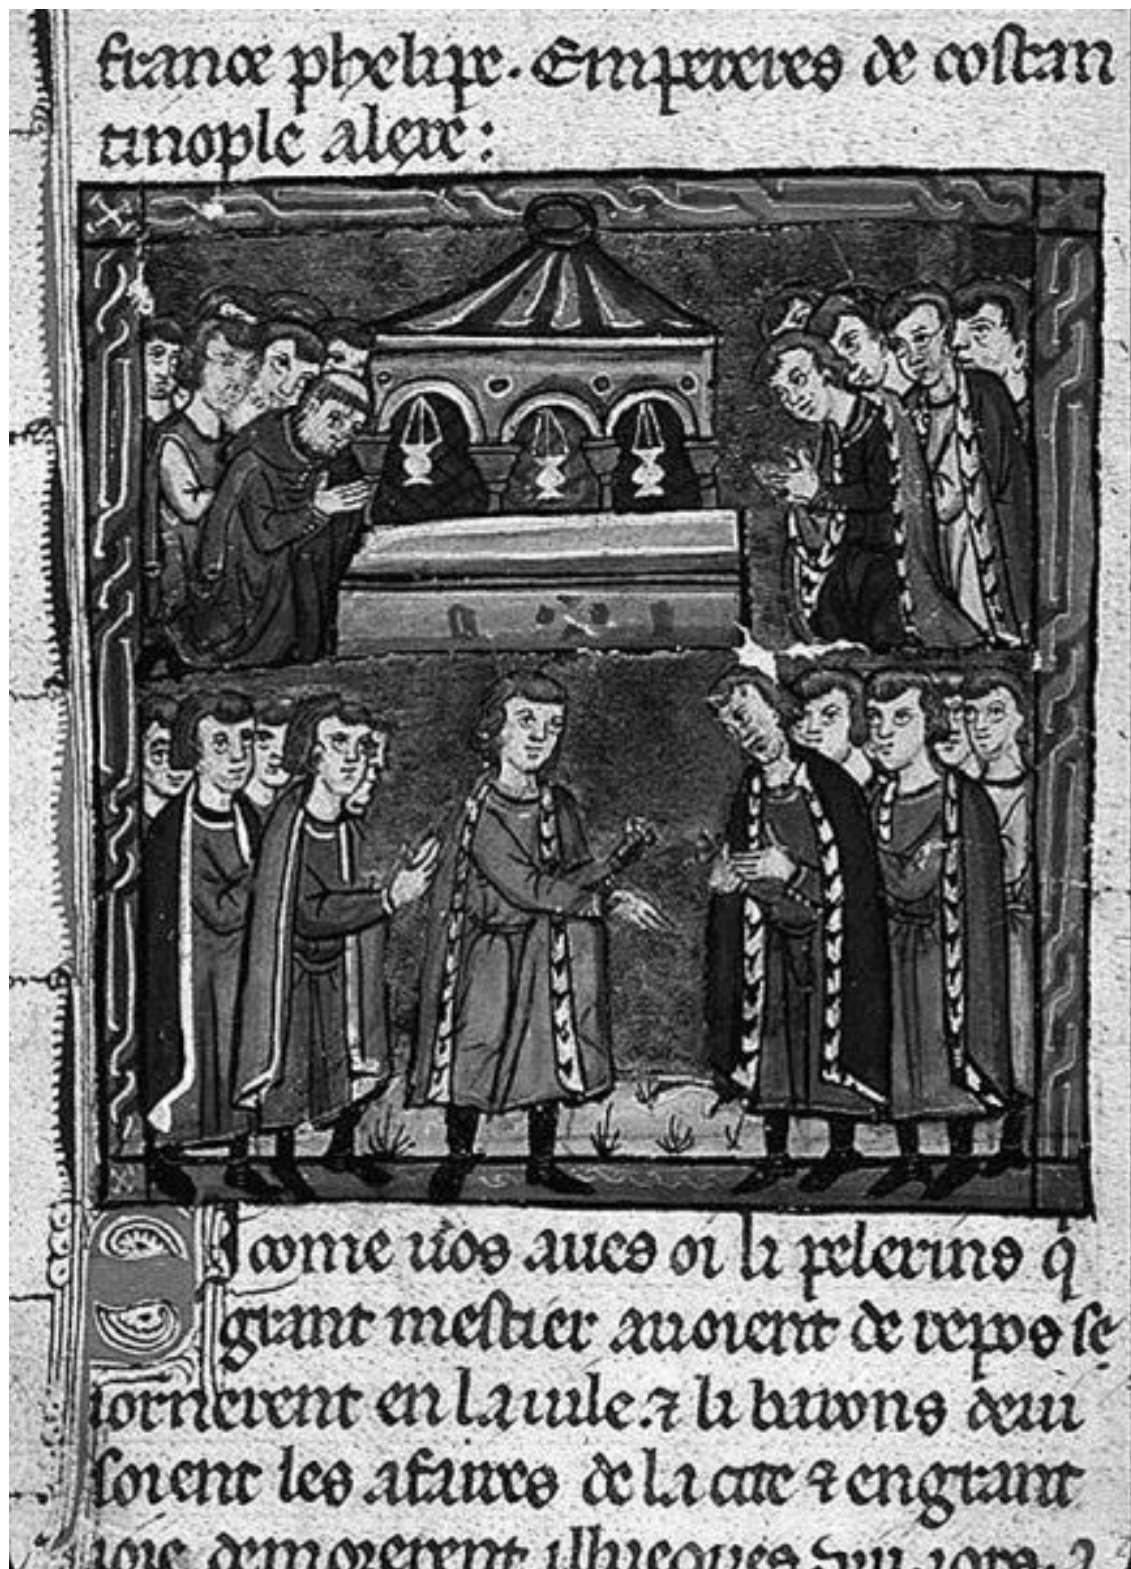 france phelipe. Empereres de costan
tinople alexe:
Si come uos aues oi li pelerins q̃
grant mestier auoient de repos se
iornerent en la uile. ⁊ li barons deui
soient les afaires de la cite ⁊ en grant
ioie demorerent illueques .viii. iors.